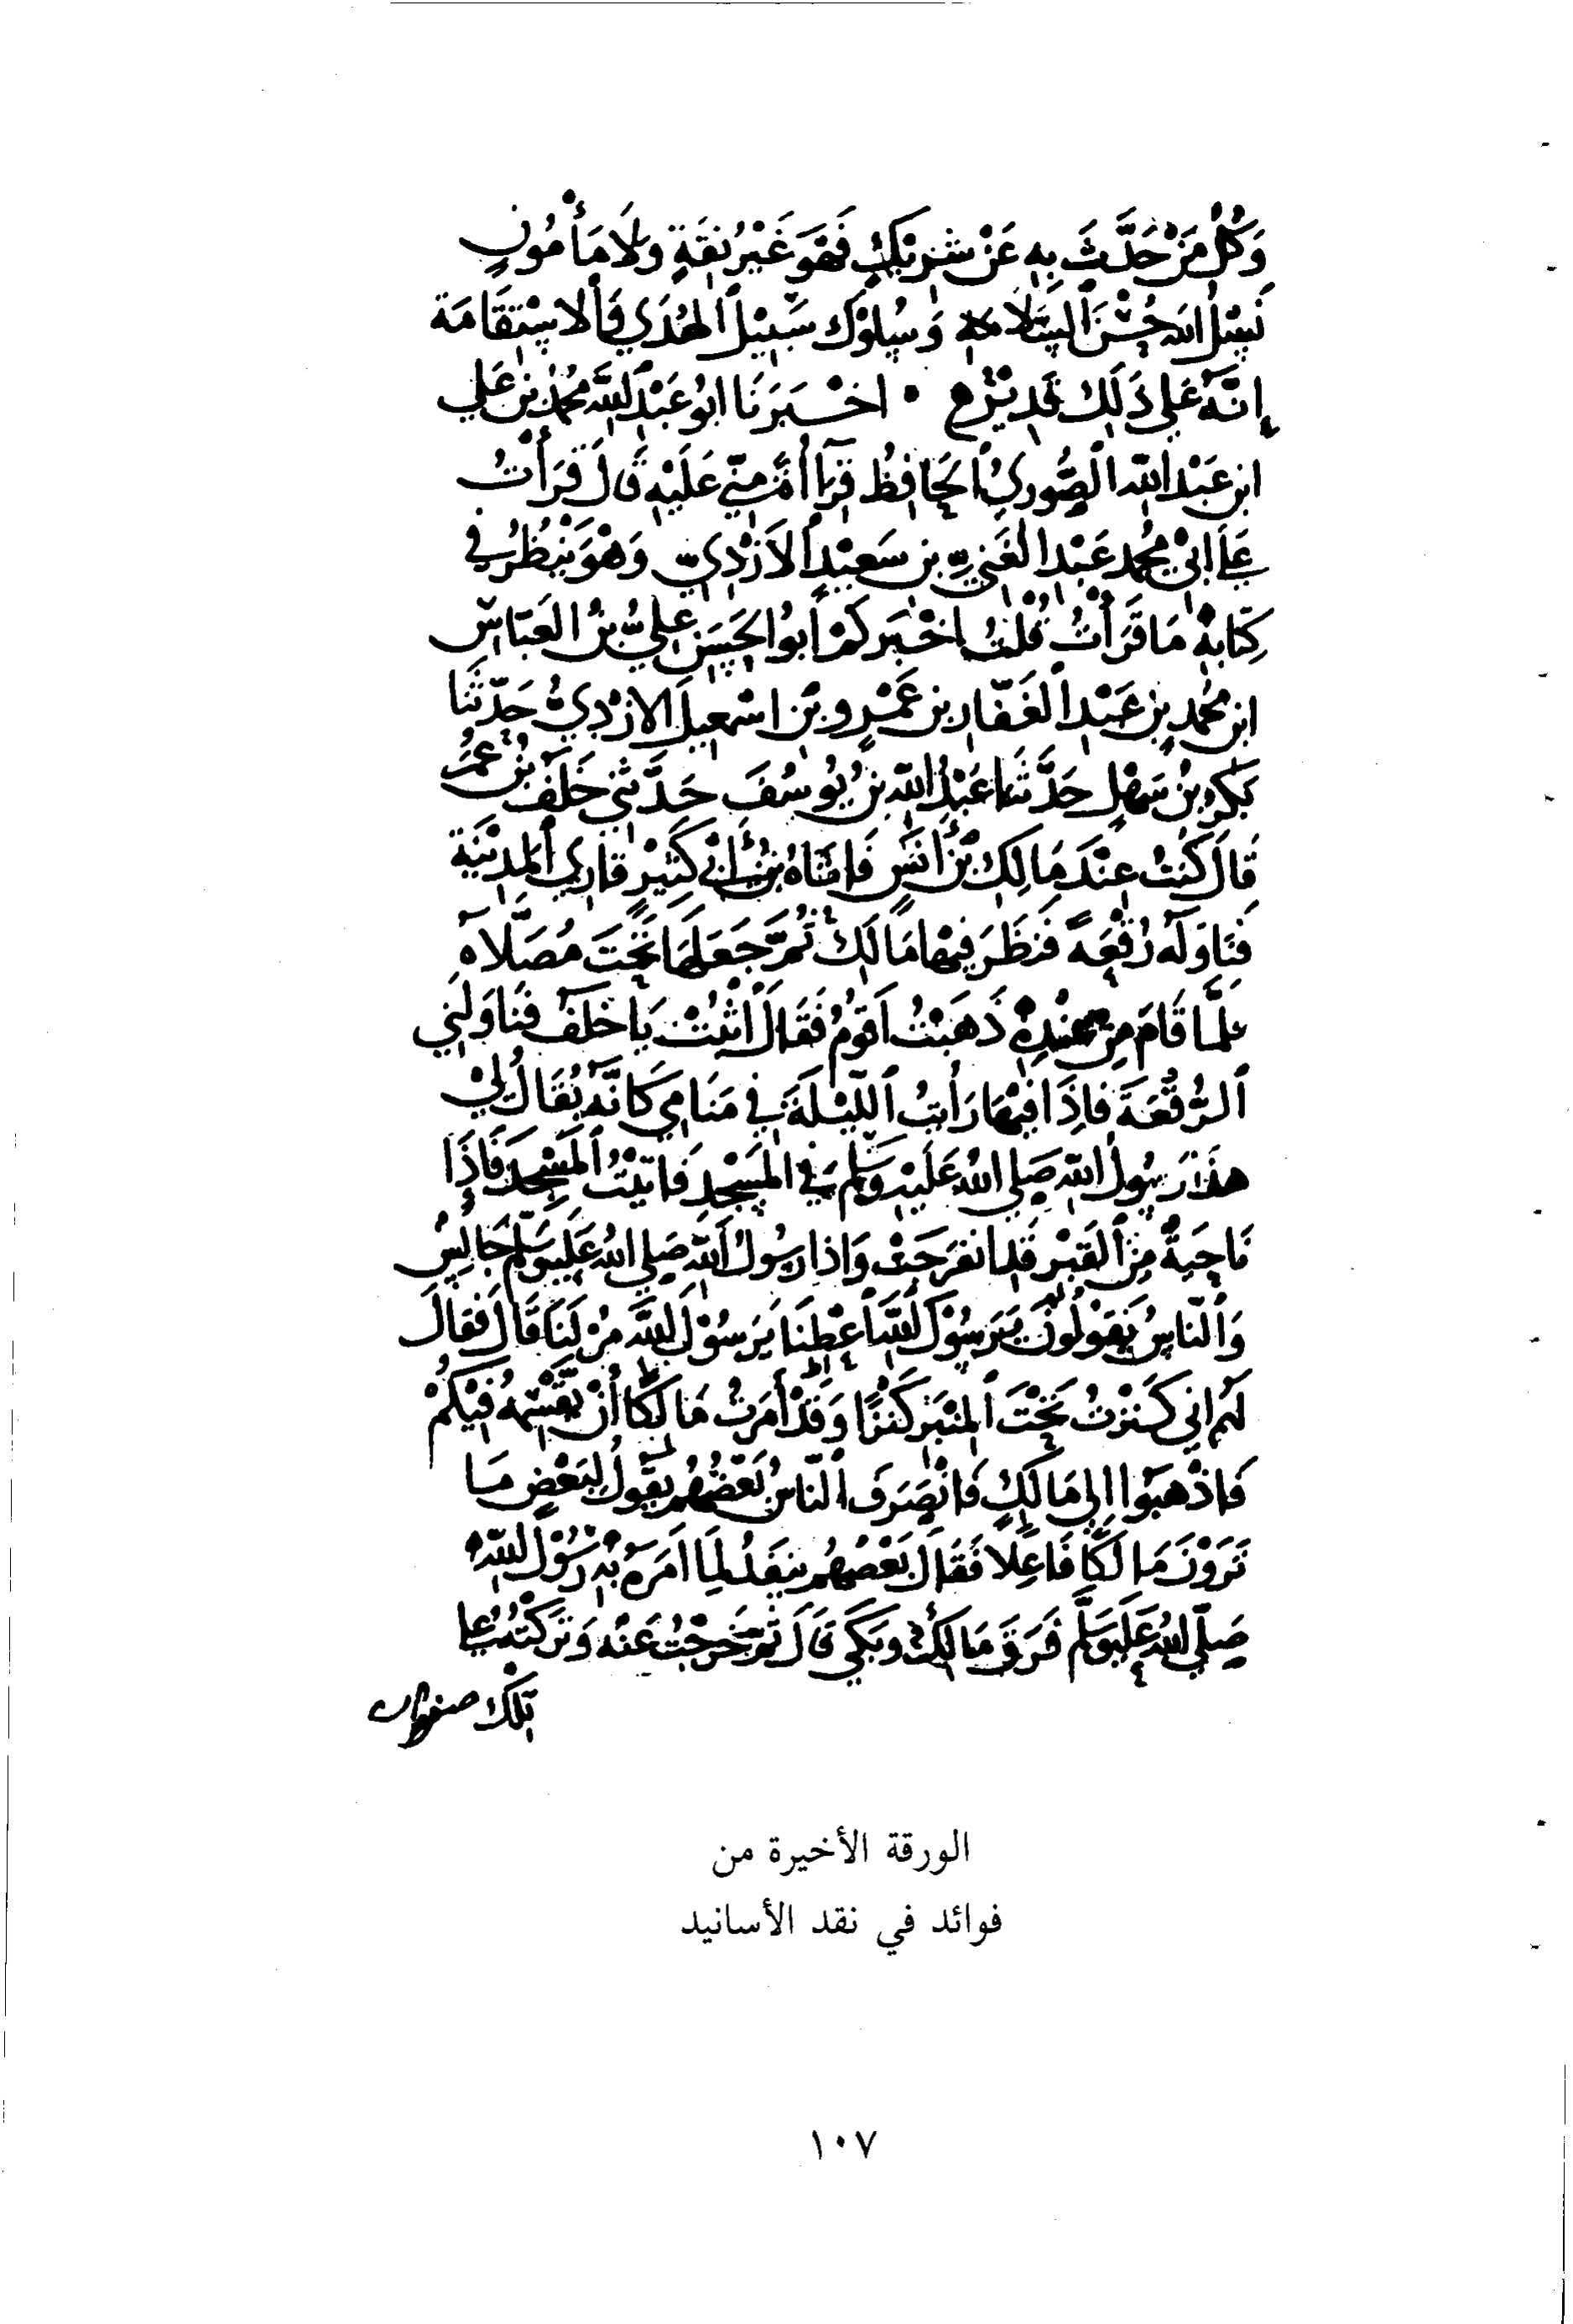 وَكُلُّ مَنْ حَدَّثَ بِهِ عَنْ شَرِيْكٍ فَهْوَ غَيْرُ ثِقَةٍ وَلَا مَأْمُونٍ
نَسْئَلُ اللهَ حُسْنَ السَّلَامَةِ وَسُلُوْكَ سَبِيْلِ الهُدَي وَالاسْتِقَامَة
إنَّهُ عَلى ذَلِكَ قَدِيْرٌ • اخْبَرَنَا ابُو عَبْدِ اللهِ مُحَمَّدُ بْنُ عَلِي
ابنِ عَبْدِ اللهِ الصُّورِيُّ الحَافِظُ قِرَاأةً مِنِّي عَلَيْهِ قَالَ قَرَأْتُ
عَلى ابِيْ مُحَمَّد عَبْدِ الغَنِيِّ بنِ سَعِيْدٍ الأَزْدِيِّ وَهْوَ يَنْظُرُ في
كِتَابِهْ مَا قَرَأتُ قُلْتُ اخْبَرَكُمْ أَبُو الحَسَنِ عَلِيُّ بْنُ العَبَّاسِ
ابنِ مُحَمدِ بْنِ عَبْدِ الغَفَّارِ بنِ عَمْرِو بْنِ اسْمعِيلَ الازْدِيُّ حَدَّثَنَا
بَكْرُ بنُ سَهْلٍ حَدَّثَنَا عَبْدُ اللهِ بْنُ يُوسُفَ حَدَّثَنِي خَلَفُ بْنُ عُمَرَ
قَالَ كُنْتُ عِنْدَ مَالِكِ بْنِ أنَسٍ فَاتَاهُ بْنُ ابِي كَثِيْرٍ قَارِي المَدِيْنَةِ
فَنَاوَلَهُ رُقْعَةً فَنَظَرَ فِيْهَا مَالِكٌ ثُمَّ جَعَلَهَا تَحْتَ مُصَلَّاهُ
فَلَمَّا قَامَ مِنْ عِنْدِهِ ذَهَبْتُ اقُومُ فَقَالَ اثْبُتْ يَا خَلَفُ فَنَاوَلَنِي
الرُّقْعَةَ فَاِذَا فِيْهَا رَأيتُ اللَّيْلَةَ فِي مَنَامِي كَانَّهُ يُقَالُ لِيْ
هذَا رَسُولُ اللهِ صَلى اللهُ عَلَيْهِ وَسَلَّم فِي المَسْجِدِ فَاتَيْتُ المَسْجِدَ فَإذَا
نَاحِيَةٌ مِنَ القَبْرِ قَد انفَرَجَتْ وَاذا رَسُولُ اللهِ صَلي اللهُ عَلَيْهِ وَسَلَّمَ جَالِسٌ
وَالنَّاسُ يَقُولُونَ يَرَسُوْلَ اللهِ أعْطِنَا يَرَسُوْلَ اللهِ مُرْ لَنَا قَالَ فَقالَ
لَهُم اني كَنَزْتُ تَحْتَ المِنْبَرِ كَنْزًا وَقَدْ أَمَرتُ مَالِكًا أنْ يَقْسِمَهُ فِيْكُمْ
فَاذْهَبُوا الي مَالِكٍ فَانْصَرَفَ النَّاسُ بَعْضُهُم يَقُولُ لِبَعْضٍ مَا
تَرَوْنَ مَالِكًا فَاعِلًا فَقَالَ بَعْضُهُم يَنفُذُ لِمَا امَرَهُ بِهِ رَسُوْلُ اللهِ
صَلَّى اللهُ عَلَيْهِ وَسَلَّم فَرَقَّ مَالِكٌ وبَكَي قَالَ ثُمَّ خَرَجْتُ عَنْهُ وَتَرَكْتُهُ عَلى
تلك
الورقة الأخيرة من
فوائد في نقد الأسانيد
١٠٧